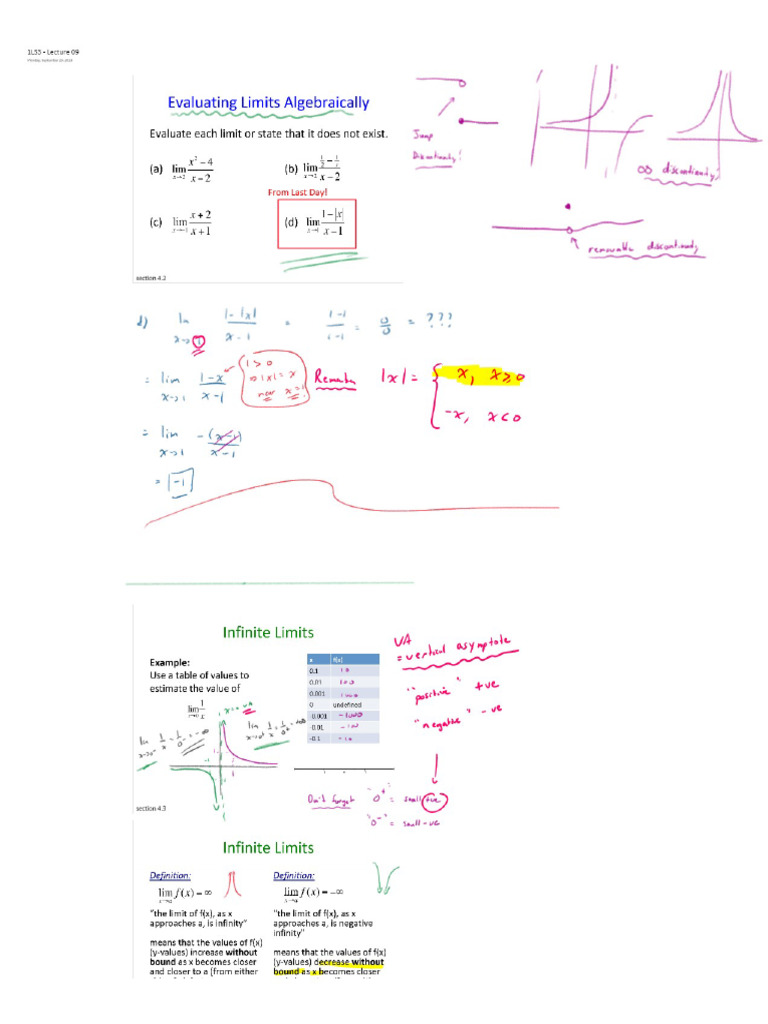 1LS3 - Lecture 09
Evaluating Limits Algebraically
Evaluate each limit or state that it does not exist.
(a) lim x→2 (x² − 4)/(x − 2)
(b) lim x→2 (1/2 − 1/x)/(x − 2)
From Last Day!
(c) lim x→−1 (x + 2)/(x + 1)
(d) lim x→1 (1 − |x|)/(x − 1)
section 4.2
Jump
Discontinuity!
∞ discontinuity!
removable discontinuity
d) lim x→1 (1 − |x|)/(x − 1) = (1 − 1)/(1 − 1) = 0/0 = ???
= lim x→1 (1 − x)/(x − 1)
1 > 0
so |x| = x
near x = 1
|x| = { x, x ≥ 0
−x, x < 0
= lim x→1 −(x − 1)/(x − 1)
= −1
Infinite Limits
Example:
Use a table of values to
estimate the value of
lim x→0 1/x
x f(x)
0.1 10
0.01 100
0.001 1000
0 undefined
-0.001 -1000
-0.01 -100
-0.1 -10
x = 0 VA
VA
= vertical asymptote
"positive" +ve
"negative" -ve
Don't forget "0⁺" = small +ve
"0⁻" = small -ve
section 4.3
Infinite Limits
Definition:
lim x→a f(x) = ∞
"the limit of f(x), as x
approaches a, is infinity"
means that the values of f(x)
(y-values) increase without
bound as x becomes closer
and closer to a (from either
Definition:
lim x→a f(x) = −∞
"the limit of f(x), as x
approaches a, is negative
infinity"
means that the values of f(x)
(y-values) decrease without
bound as x becomes closer